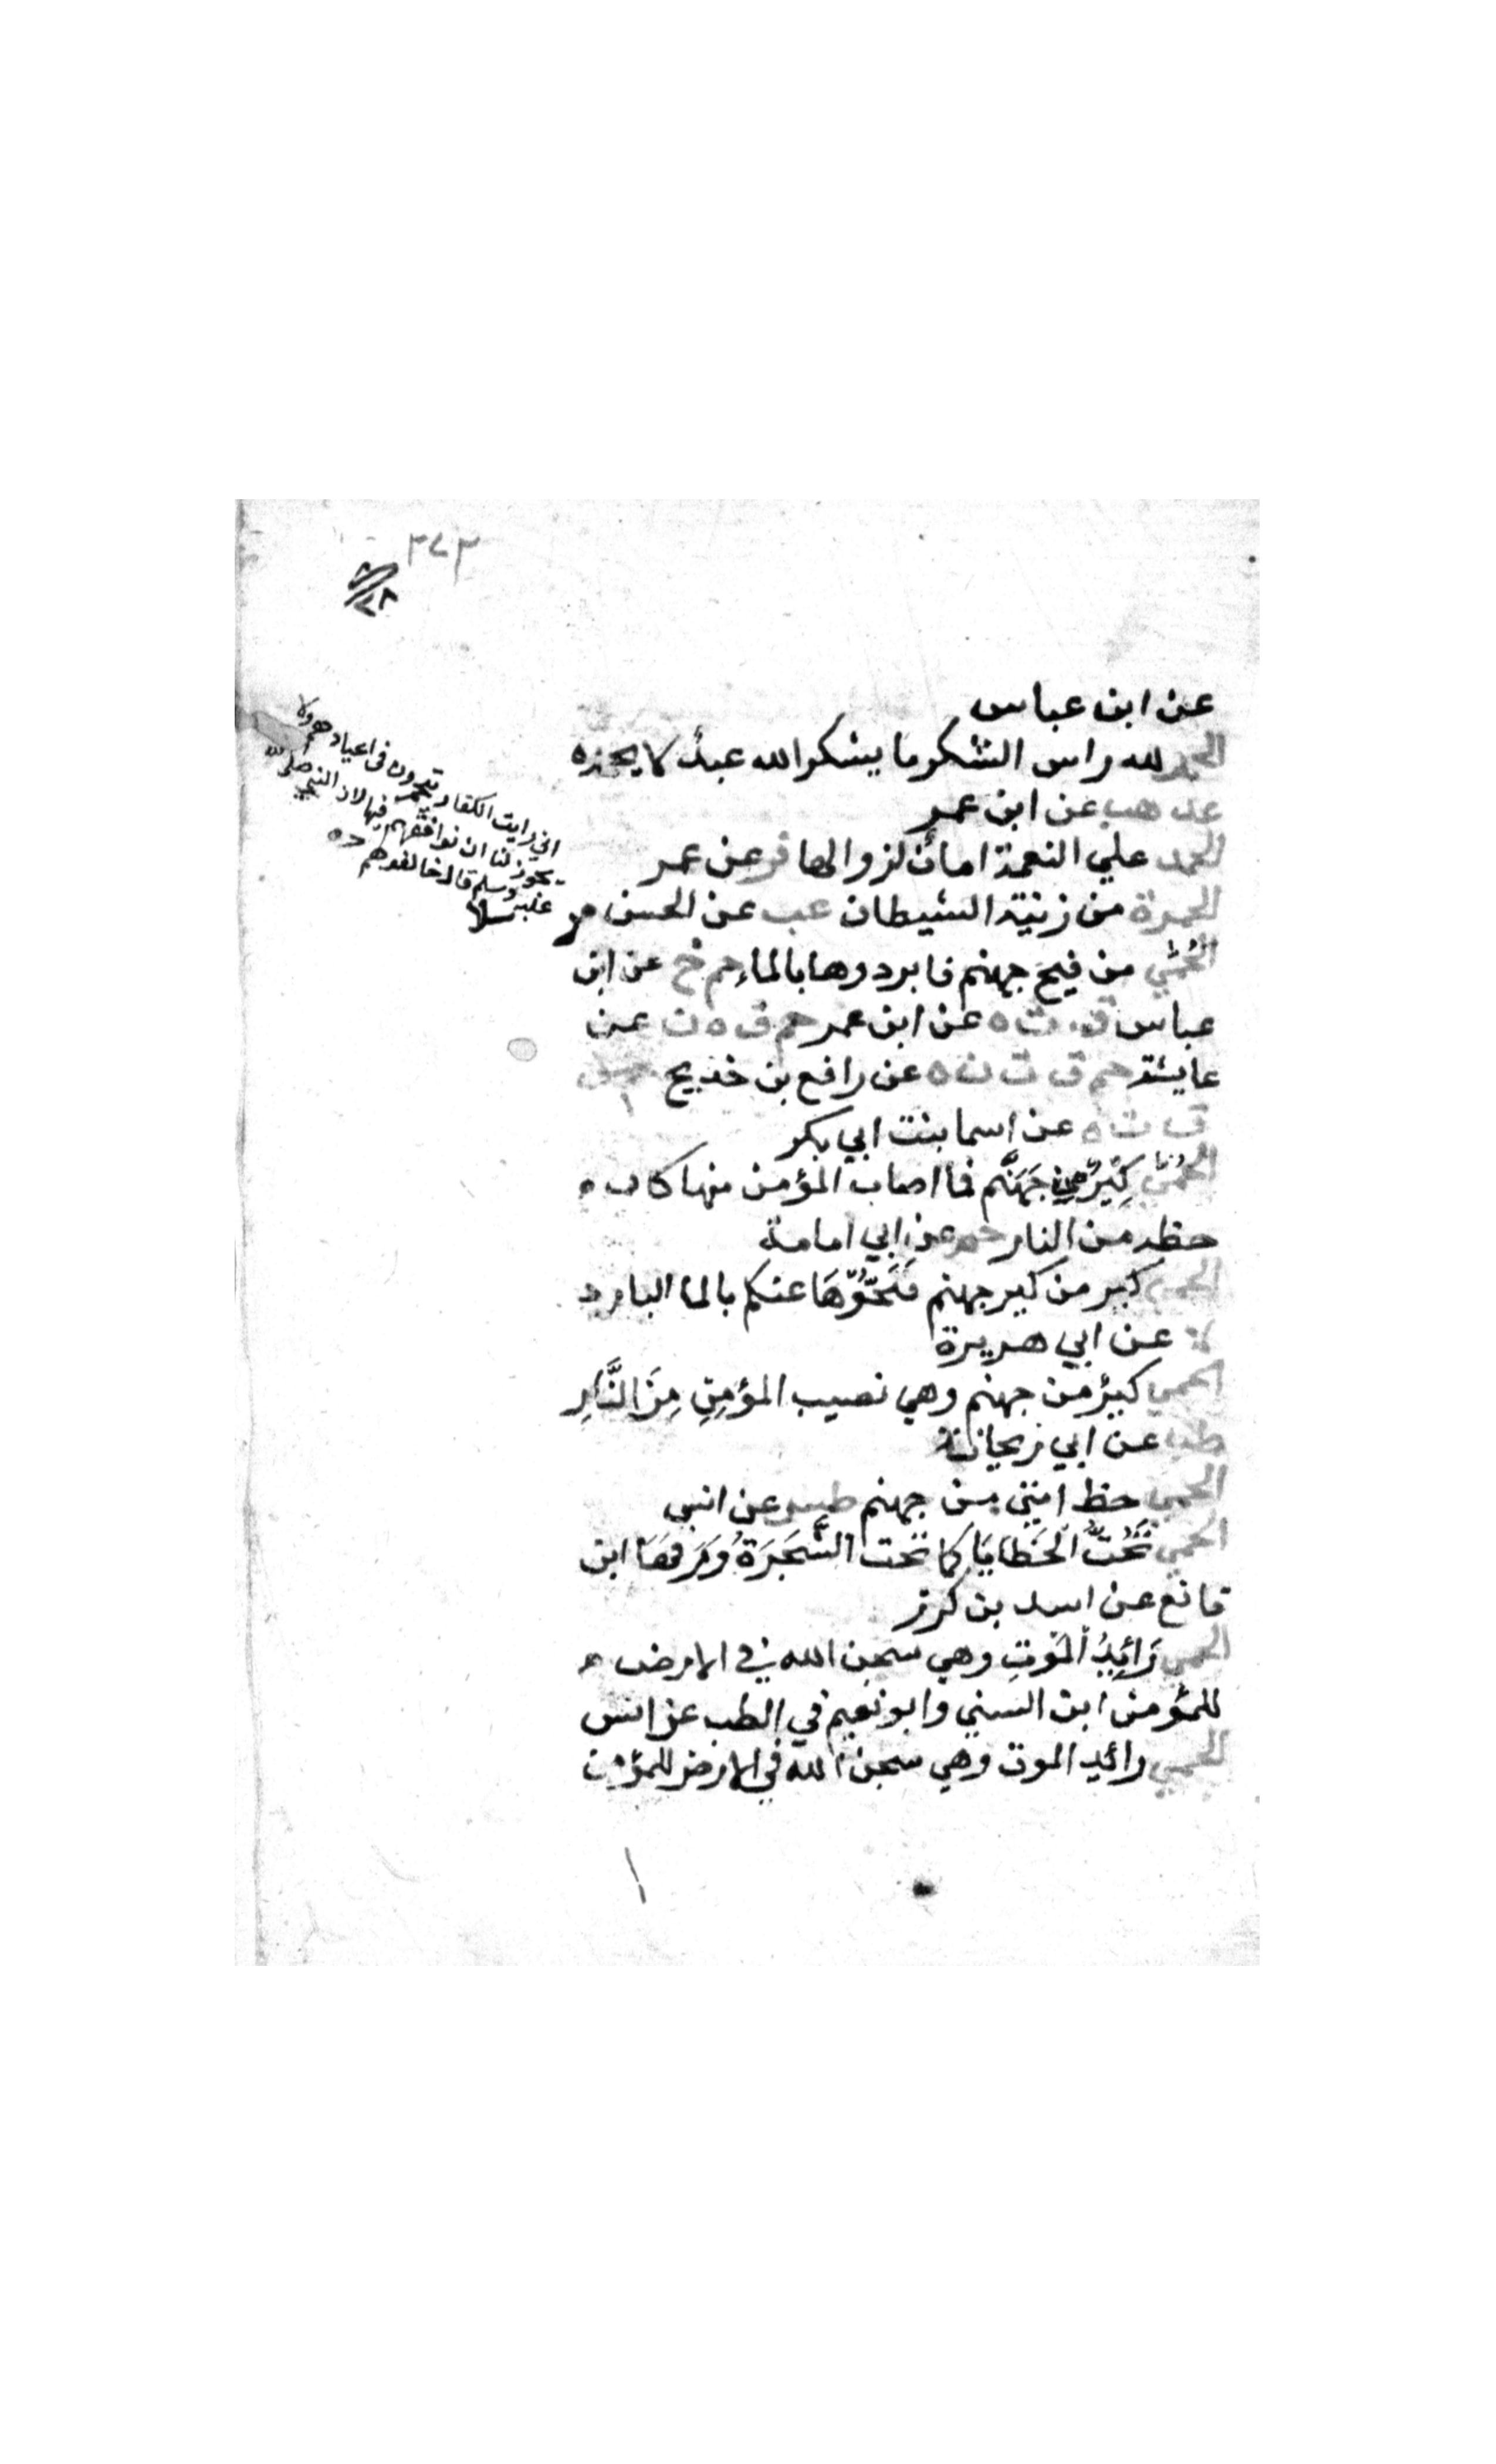 ٢٧٣
عن ابن عباس
الحمد لله راس الشكر ما يشكر الله عبدٌ لا يحمده
عب هب عن ابن عمر
الحمد علي النعمة امانٌ لزوالها فر عن عمر
الحمرة من زينة الشيطان عب عن الحسن مر
سلا
الحُمّي من فيح جهنم فابردوها بالماء حم خ عن ابن
عباس ق ت ه عن ابن عمر حم ق ه ن عن
عايشة حم ق ت ن ه عن رافع بن خديج حم
ق ت ه عن اسما بنت ابي بكر
الحُمّي كِيْرٌ مِن جَهَنَّم فما اصاب المؤمن منها كان ه
حظه من النار حم عن ابي امامة
الحمي كير من كير جهنم فَنَحّوْهَا عنكم بالما البارد
ه عن ابي هريرة
الحمي كيرٌ من جهنم وهي نصيب المؤمِنِ مِنَ النَّارِ
طب عن ابي ريحانة
الحمي حظ امتي من جهنم طس عن انس
الحمي تَحُتُّ الخَطايَا كما تحت الشَّجَرَةُ وَرَقَهَا ابن
قانع عن اسد بن كرز
الحمي رَائِدُ الْمَوْتِ وهي سجن الله في الارض ه
للمؤمن ابن السني وابو نعيم في الطب عن انس
الحمي رائد الموت وهي سجن الله في الارض للمؤمن
اني رايت الكفار في اعيادهم ولا
يجوز لنا ان نوافقهم فيها لان النبي صلى الله
عليه وسلم قال خالفوهم